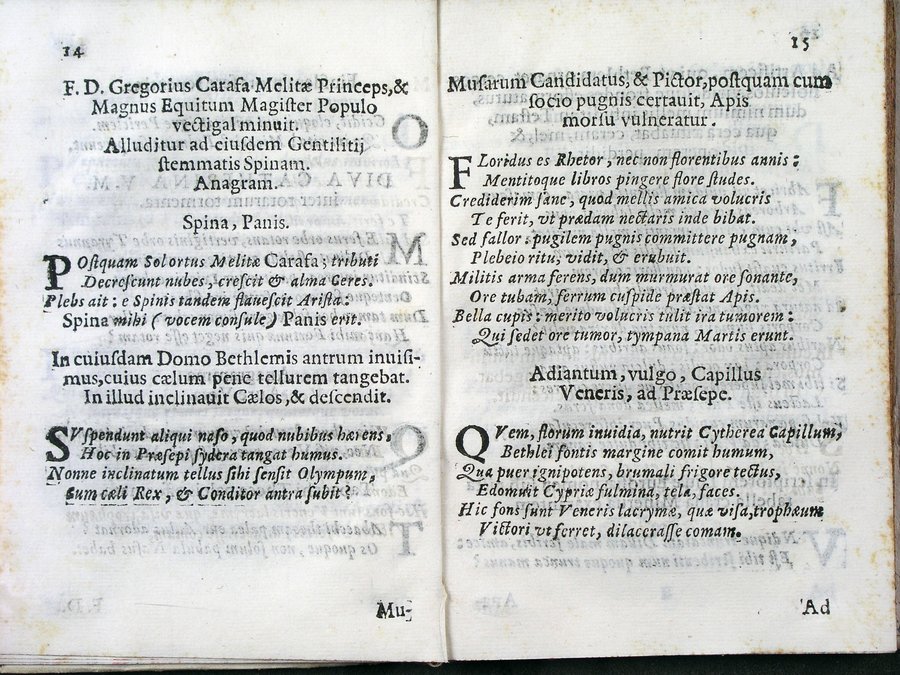 14
F. D. Gregorius Carafa Melitæ Princeps,&
Magnus Equitum Magiſter Populo
vectigal minuit.
Alluditur ad eiuſdem Gentilitij
ſtemmatis Spinam.
Anagram.
Spina, Panis.
POſtquam Sol ortus Melitæ Carafa; tributi
Decreſcunt nubes, creſcit & alma Ceres.
Plebs ait: e Spinis tandem flaueſcit Ariſta:
Spina mihi (vocem conſule) Panis erit.
In cuiuſdam Domo Bethlemis antrum inuiſi-
mus, cuius cælum pene tellurem tangebat.
In illud inclinauit Cælos, & deſcendit.
SVſpendunt aliqui naſo, quod nubibus hærens,
Hoc in Præſepi ſydera tangat humus.
Nonne inclinatum tellus ſibi ſenſit Olympum,
Cum cæli Rex, & Conditor antra ſubit?
Mu-
15
Muſarum Candidatus, & Pictor, poſtquam cum
ſocio pugnis certauit, Apis
morſu vulneratur.
FLoridus es Rhetor, nec non florentibus annis:
Mentitoque libros pingere flore ſtudes.
Crediderim ſane, quod mellis amica volucris
Te ferit, vt prædam nectaris inde bibat.
Sed fallor: pugilem pugnis committere pugnam,
Plebeio ritu, vidit, & erubuit.
Militis arma ferens, dum murmurat ore ſonante,
Ore tubam, ferrum cuſpide præſtat Apis.
Bella cupis: merito volucris tulit ira tumorem:
Qui ſedet ore tumor, tympana Martis erunt.
Adiantum, vulgo, Capillus
Veneris, ad Præſepe.
QVem, florum inuidia, nutrit Cytherea Capillum,
Bethlei fontis margine comit humum,
Qua puer ignipotens, brumali frigore tectus,
Edomuit Cypriæ fulmina, tela, faces.
Hic fons ſunt Veneris lacrymæ, quæ viſa, trophæum
Victori vt ferret, dilaceraſſe comam.
Ad